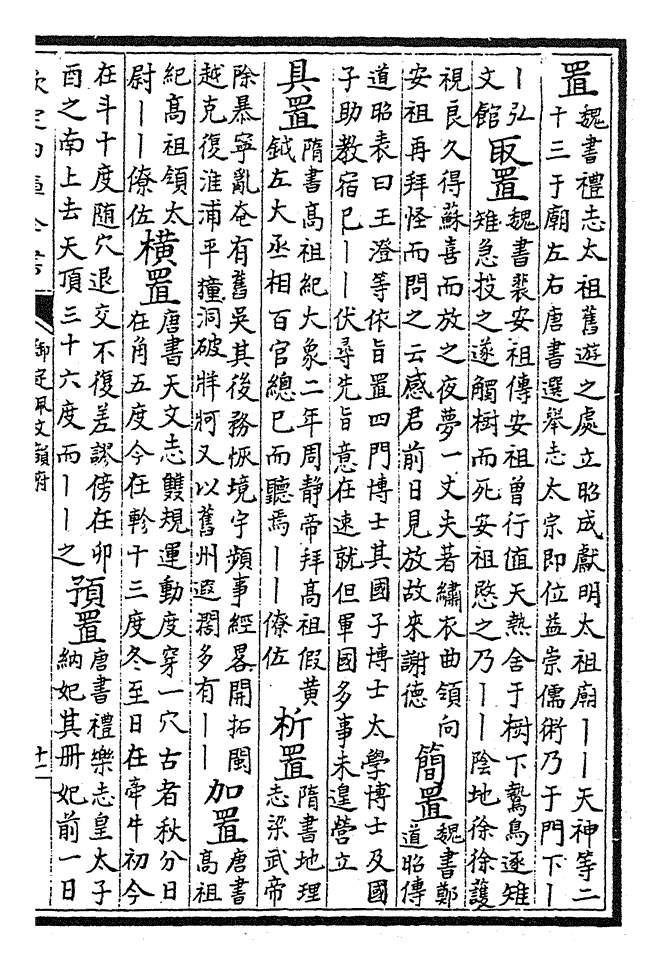 置魏書禮志太祖舊遊之處立昭成獻明太祖廟丨丨天神等二
十三于廟左右唐書選舉志太宗即位益崇儒術乃于門下丨
丨弘
文館
取置魏書裴安祖傳安祖曾行值天熱舍于樹下鷙鳥逐雉
雉急投之遂觸樹而死安祖愍之乃丨丨陰地徐徐護
視良久得蘇喜而放之夜夢一丈夫著繡衣曲領向
安祖再拜怪而問之云感君前日見放故來謝德
簡置魏書鄭
道昭傳
道昭表曰王澄等依旨置四門博士其國子博士太學博士及國
子助教宿已丨丨伏尋先旨意在速就但軍國多事未遑營立
具置隋書高祖紀大象二年周静帝拜高祖假黄
鉞左大丞相百官總已而聽焉丨丨僚佐
析置隋書地理
志梁武帝
除暴寧亂奄有舊吳其後務恢境宇頻事經畧開拓閩
越克復淮浦平獞洞破牂牁又以舊州遐濶多有丨丨
加置唐書
高祖
紀高祖領太
尉丨丨僚佐
橫置唐書天文志雙規運動度穿一穴古者秋分日
在角五度今在軫十三度冬至日在牽牛初今
在斗十度随穴退交不復差謬傍在卯
酉之南上去天頂三十六度而丨丨之
預置唐書禮樂志皇太子
納妃其册妃前一日
欽定四庫全書
御定佩文韻府